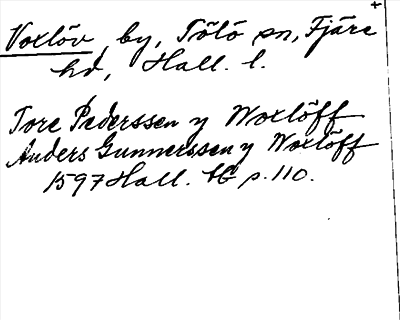 Voxlöv, by, Tölö sn, Fjäre
hd, Hall. l.
Tore Pederssen y Woxlöff
Anders Gunnerssen y Woxlöff
1597 Hall. AG p. 110.